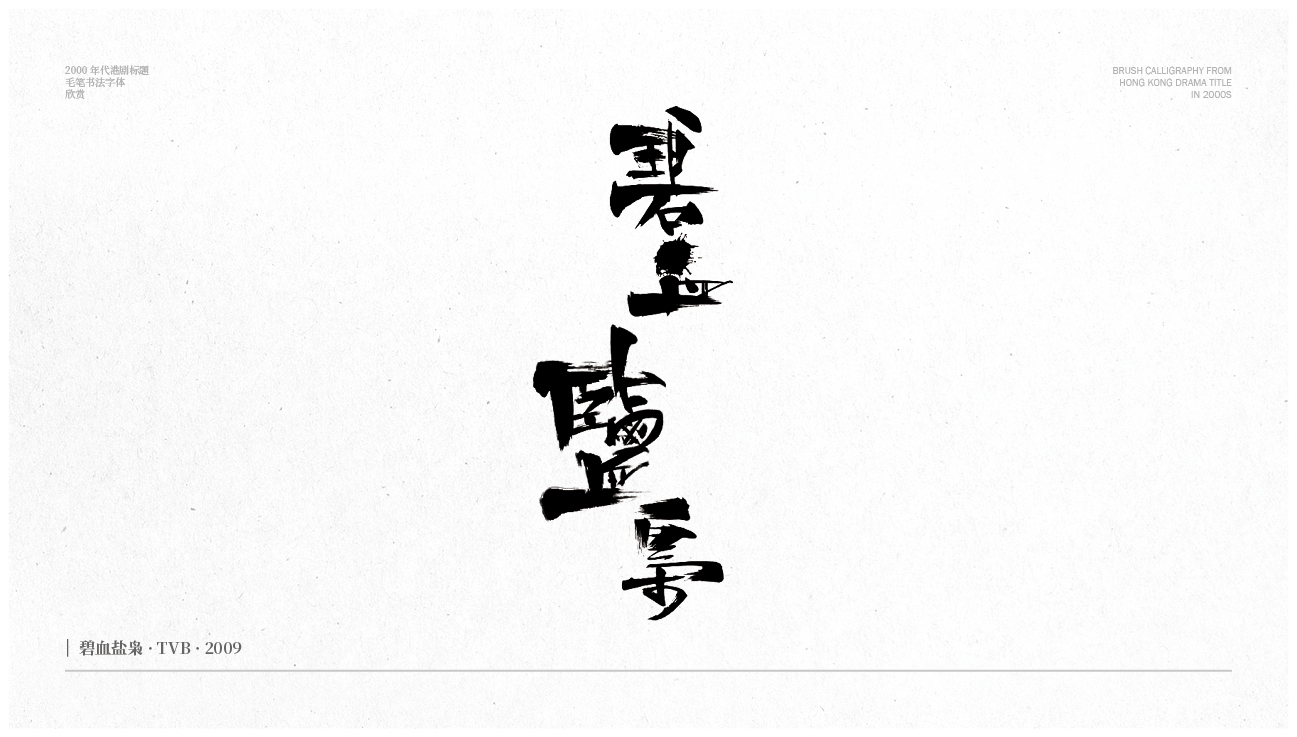 2000 年代港剧标题
毛笔书法字体
欣赏
BRUSH CALLIGRAPHY FROM
HONG KONG DRAMA TITLE
IN 2000S
碧血鹽梟
碧血盐枭 · TVB · 2009